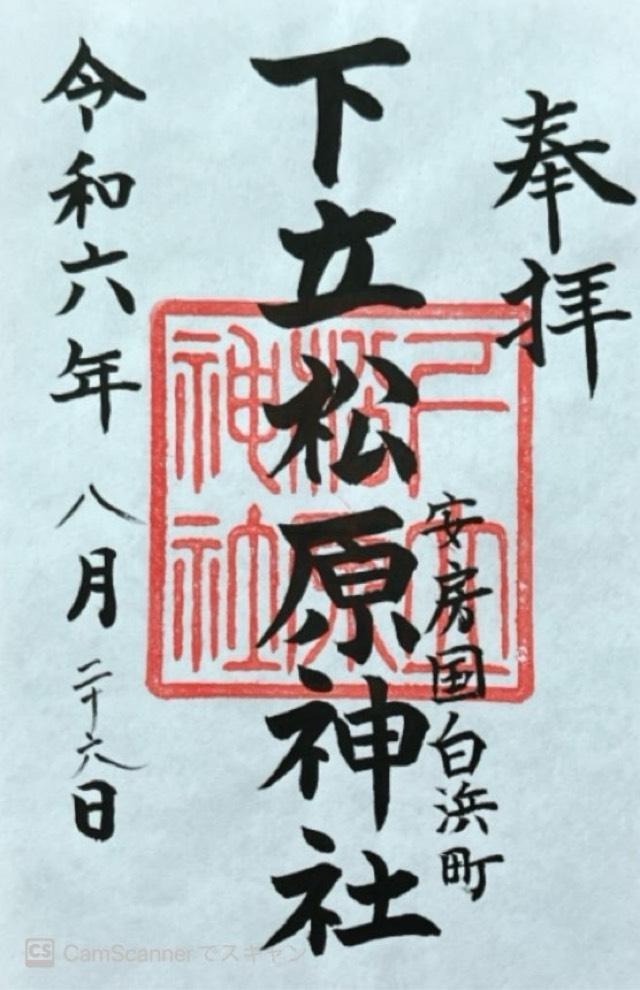 奉拝
安房国白浜町
下立松原神社
下立松原神社
令和六年 八月二十六日
CS CamScannerでスキャン